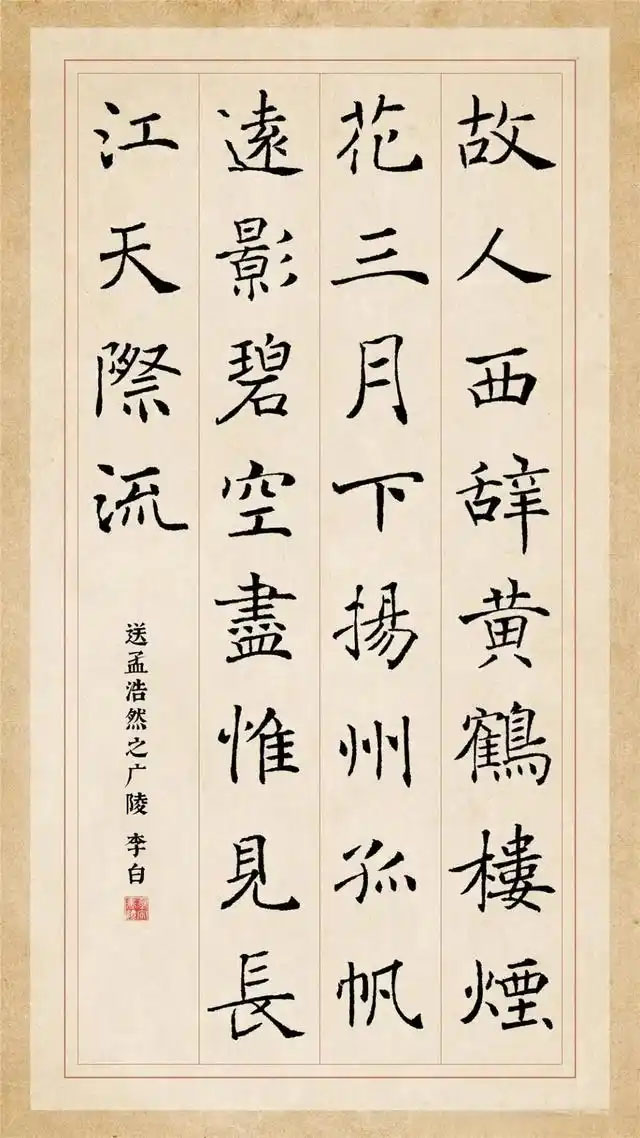 故人西辞黄鶴樓煙
花三月下揚州孤帆
遠影碧空盡惟見長
江天際流
送孟浩然之广陵 李白